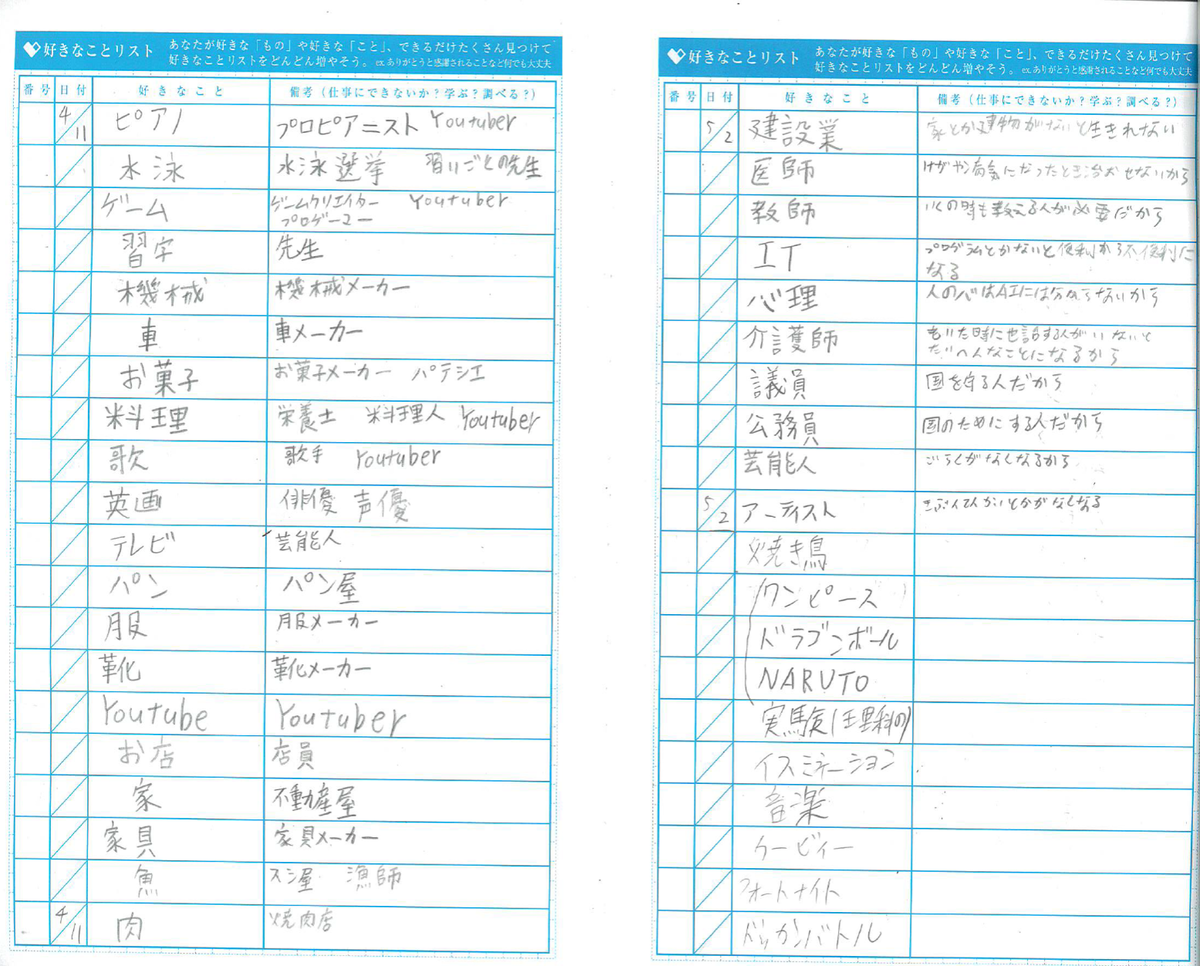 好きなことリスト あなたが好きな「もの」や好きな「こと」、できるだけたくさん見つけて
好きなことリストをどんどん増やそう。 ex.ありがとうと感謝されることなど何でも大丈夫
番号 日付 好きなこと 備考（仕事にできないか？学ぶ？調べる？）
4/11 ピアノ プロピアニスト Youtuber
水泳 水泳選挙 習いごとの先生
ゲーム ゲームクリエイター Youtuber
プロゲーマー
習字 先生
機械 機械メーカー
車 車メーカー
お菓子 お菓子メーカー パテシエ
料理 栄養士 料理人 Youtuber
歌 歌手 Youtuber
英画 俳優 声優
テレビ 芸能人
パン パン屋
服 服メーカー
靴 靴メーカー
Youtube Youtuber
お店 店員
家 不動産屋
家具 家具メーカー
魚 スシ屋 漁師
4/11 肉 焼肉店
好きなことリスト あなたが好きな「もの」や好きな「こと」、できるだけたくさん見つけて
好きなことリストをどんどん増やそう。 ex.ありがとうと感謝されることなど何でも大丈夫
番号 日付 好きなこと 備考（仕事にできないか？学ぶ？調べる？）
5/2 建設業 家とか建物がないと生きれない
医師 けがや病気になったとき治おせないから
教師 いくの時も教える人が必要だから
IT プログラムとかないと便利から不便利に
なる
心理 人の心はAIには分からないから
介護師 もいた時にせ話する人がいないと
たいへんなことになるから
議員 国を守る人だから
公務員 国のためにする人だから
芸能人 ごらくがなくなるから
5/2 アーティスト きぶんてんかいとかがなくなる
焼き鳥
ワンピース
ドラゴンボール
NARUTO
実験(理科の)
イスミネーション
音楽
ケービィー
フォートナイト
ドッカンバトル